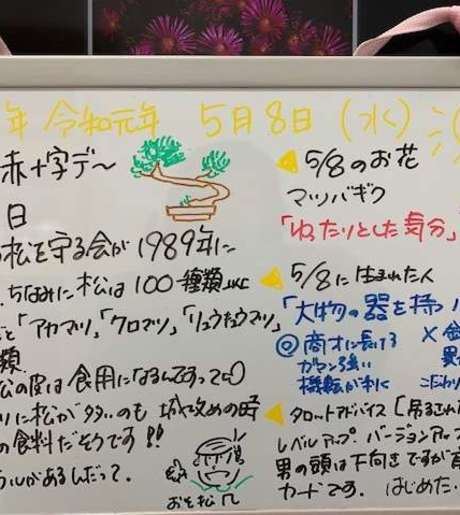 年 令和元年 5月8日 (水)
赤十字デー
日
の松を守る会が1989年に
ちなみに松は100種類以上
と「アカマツ」「クロマツ」「リュウキュウマツ」
類
松の皮は食用になるんですって
りに松が多いのも 城攻めの時
の食料だそうです!!
ルがあるんだって.
おそ松
5/8のお花
マツバギク
「ゆったりとした気分」
5/8に生まれた人
「大物の器を持つ
◎商才に長ける
ガマン強い
機転が利く
× 金
こだわり
タロットアドバイス [吊るされ
レベルアップ. バージョンアップ
男の頭は下向きですが
カードです. はじめた.